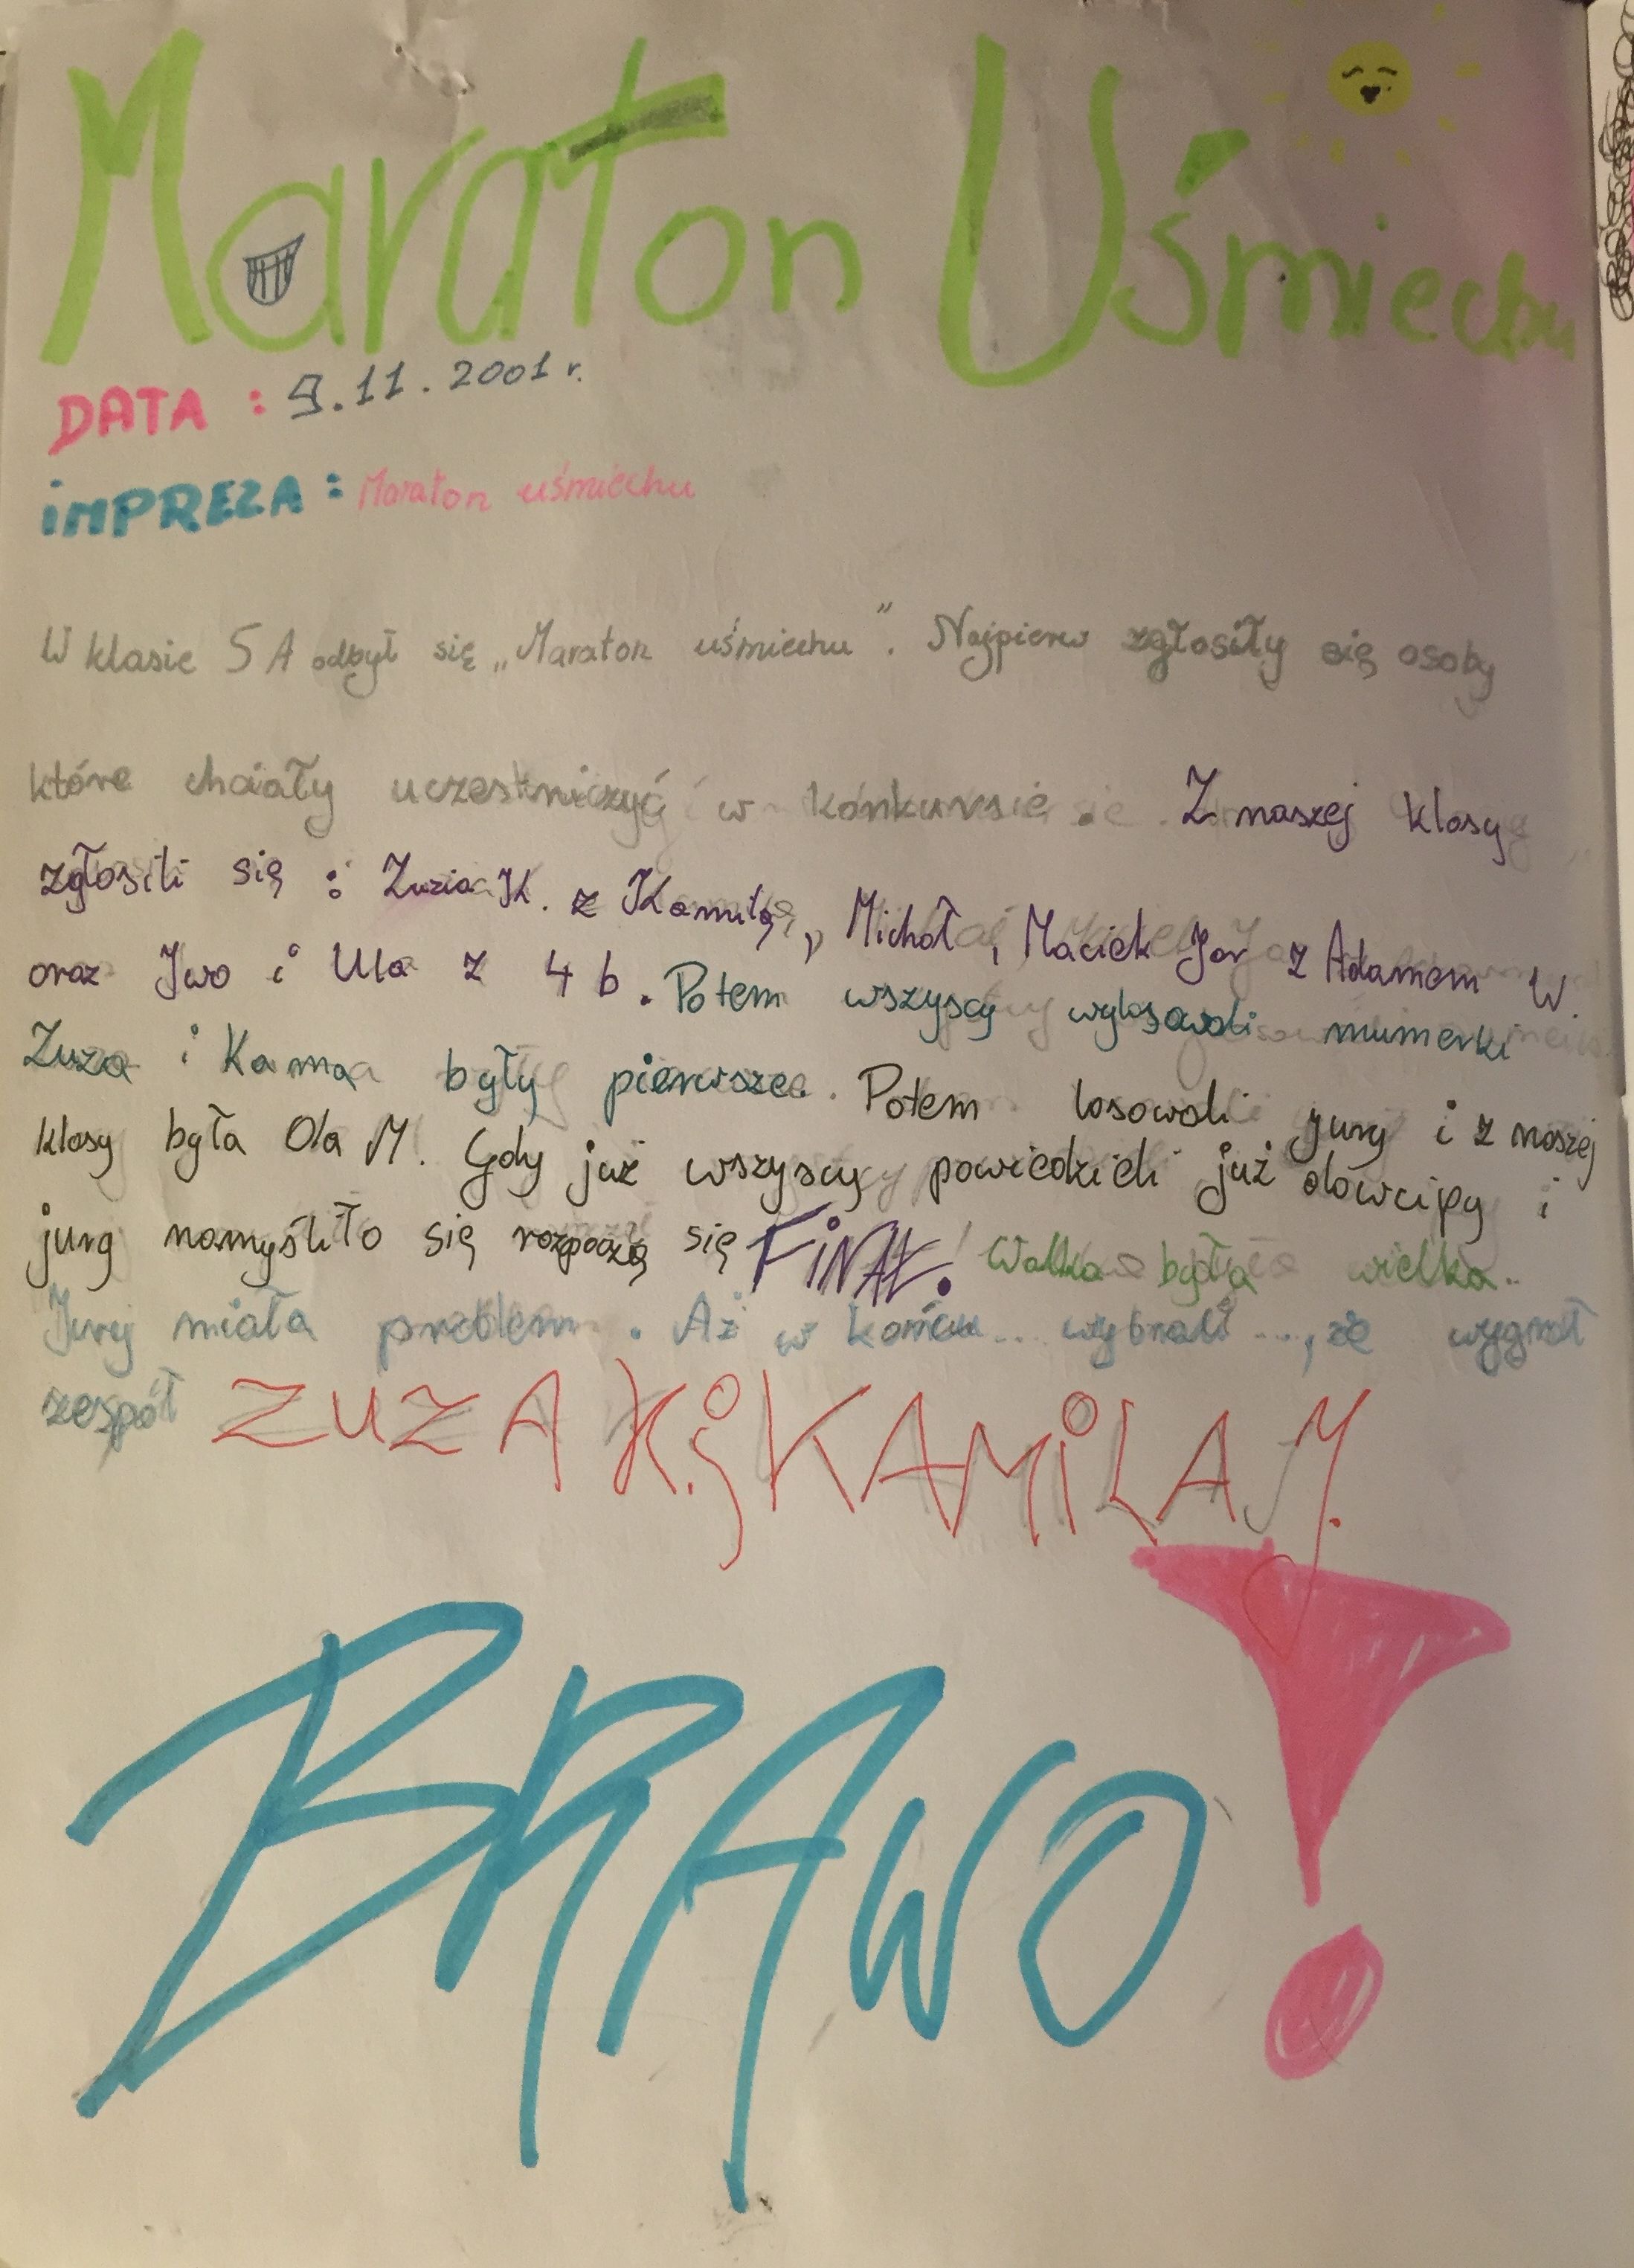 Maraton Uśmiechu
DATA : 9.11.2001 r.
iMPREZA : Maraton uśmiechu
W klasie 5 A odbył się „Maraton uśmiechu”. Najpierw zgłosiły się osoby
które chciały uczestniczyć w konkursie. Z naszej klasy
zgłosili się : Zuzia K. z Kamilą, Michał, Maciek Jar z Adamem W.
oraz Iwo i Ula z 4 b. Potem wszyscy wylosowali numerki
Zuza i Kama były pierwsze. Potem losowali jury i z naszej
klasy była Ola M. Gdy już wszyscy powiedzieli już dowcipy i
jury namyśliło się rozpoczą się FiNAŁ. Walka była wielka..
Jury miała problem. Aż w końcu... wybrali ..., że wygrał
zespół ZUZA K. i KAMiLA M.
BRAWO!